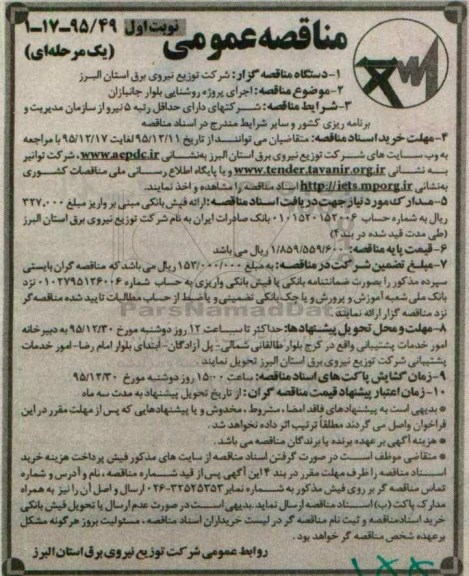 نوبت اول ۴۹/۹۵-۱۷-۱
مناقصه عمومی
(یک مرحله‌ای)
۱-دستگاه مناقصه گزار: شرکت توزیع نیروی برق استان البرز
۲-موضوع مناقصه: اجرای پروژه روشنایی بلوار جانبازان
۳-شرایط مناقصه: شرکتهای دارای حداقل رتبه ۵ نیرو از سازمان مدیریت و
برنامه ریزی کشور و سایر شرایط مندرج در اسناد مناقصه
۴-مهلت خرید اسناد مناقصه: متقاضیان می توانند از تاریخ ۹۵/۱۲/۱۱ لغایت ۹۵/۱۲/۱۷ با مراجعه
به وب سایت های شرکت توزیع نیروی برق استان البرز به‌نشانی www.aepdc.ir، شرکت توانیر
به نشانی www.tender.tavanir.org.ir و یا پایگاه اطلاع رسانی ملی مناقصات کشوری
به‌نشانی http://iets.mporg.ir اسناد مناقصه را مشاهده و اخذ نمایند.
۵-مدارک مورد نیاز جهت دریافت اسناد مناقصه: ارائه فیش بانکی مبنی بر واریز مبلغ ۳۲۷،۰۰۰
ریال به شماره حساب ۰۱۰۱۵۲۰۱۵۲۰۰۶ بانک صادرات ایران به نام شرکت توزیع نیروی برق استان البرز
(طی مدت قید شده در بند۴)
۶-قیمت پایه مناقصه: ۱/۸۵۹/۵۵۹/۶۰۰ ریال می باشد
۷-مبلغ تضمین شرکت در مناقصه: به مبلغ ۱۵۳/۰۰۰/۰۰۰ ریال می باشد که مناقصه گران بایستی
سپرده مذکور را بصورت ضمانتنامه بانکی یا فیش بانکی واریزی به حساب شماره ۰۱۰۲۷۹۵۱۳۶۰۰۶ نزد
بانک ملی شعبه آموزش و پرورش و یا چک بانکی تضمینی و یا ضبط از حساب مطالبات تایید شده مناقصه گر
نزد مناقصه گزار ارائه نمایند
۸-مهلت و محل تحویل پیشنهادها: حداکثر تا ساعت ۱۲ روز دوشنبه مورخ ۹۵/۱۲/۳۰ به دبیرخانه
امور خدمات پشتیبانی واقع در کرج بلوار طالقانی شمالی- پل آزادگان- ابتدای بلوار امام رضا- امور خدمات
پشتیبانی شرکت توزیع نیروی برق استان البرز تحویل نمایند.
۹-زمان گشایش پاکت های اسناد مناقصه: ساعت ۱۵:۰۰ روز دوشنبه مورخ ۹۵/۱۲/۳۰
۱۰-زمان اعتبار پیشنهاد قیمت مناقصه گران: از تاریخ تحویل پیشنهاد به مدت سه ماه
* بدیهی است به پیشنهادهای فاقد امضا، مشروط، مخدوش و یا پیشنهادهایی که پس از مهلت مقرر در این
فراخوان واصل می گردند مطلقاً ترتیب اثر داده نخواهد شد.
* هزینه آگهی بر عهده برنده یا برندگان مناقصه می باشد.
* متقاضی موظف است در صورت گرفتن اسناد مناقصه از سایت های مذکور فیش پرداخت هزینه خرید
اسناد مناقصه را ظرف مهلت مقرر در بند ۴ این آگهی پس از قید شماره مناقصه، نام و آدرس و شماره
تماس مناقصه گر بر روی فیش مذکور به شماره نمابر ۳۲۵۲۵۳۵۳-۰۲۶ ارسال و اصل آن را نیز به همراه
مدارک پاکت (ب) اسناد مناقصه ارسال نماید. بدیهی است در صورت عدم ارسال یا تحویل فیش بانکی
خرید اسنادمناقصه و ثبت نام مناقصه گر در لیست خریداران اسناد مناقصه، مسئولیت بروز هرگونه مشکل
برعهده شخص مناقصه گر خواهد بود.
روابط عمومی شرکت توزیع نیروی برق استان البرز